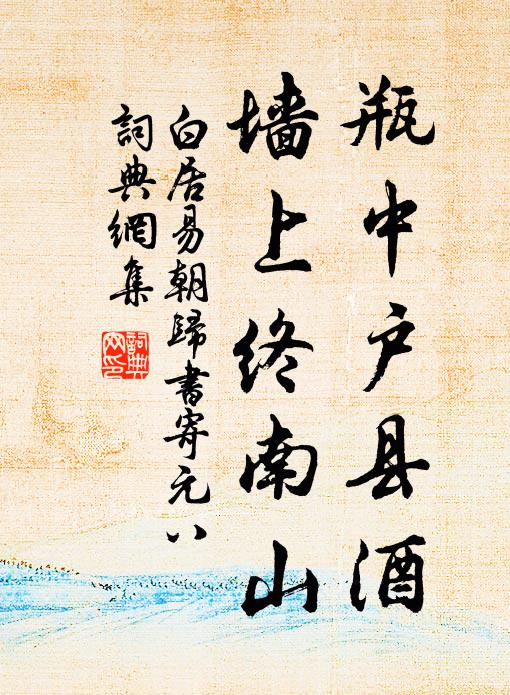 瓶中户县酒
墙上终南山
白居易朝歸書寄元八
詞典網集
詞典
网印